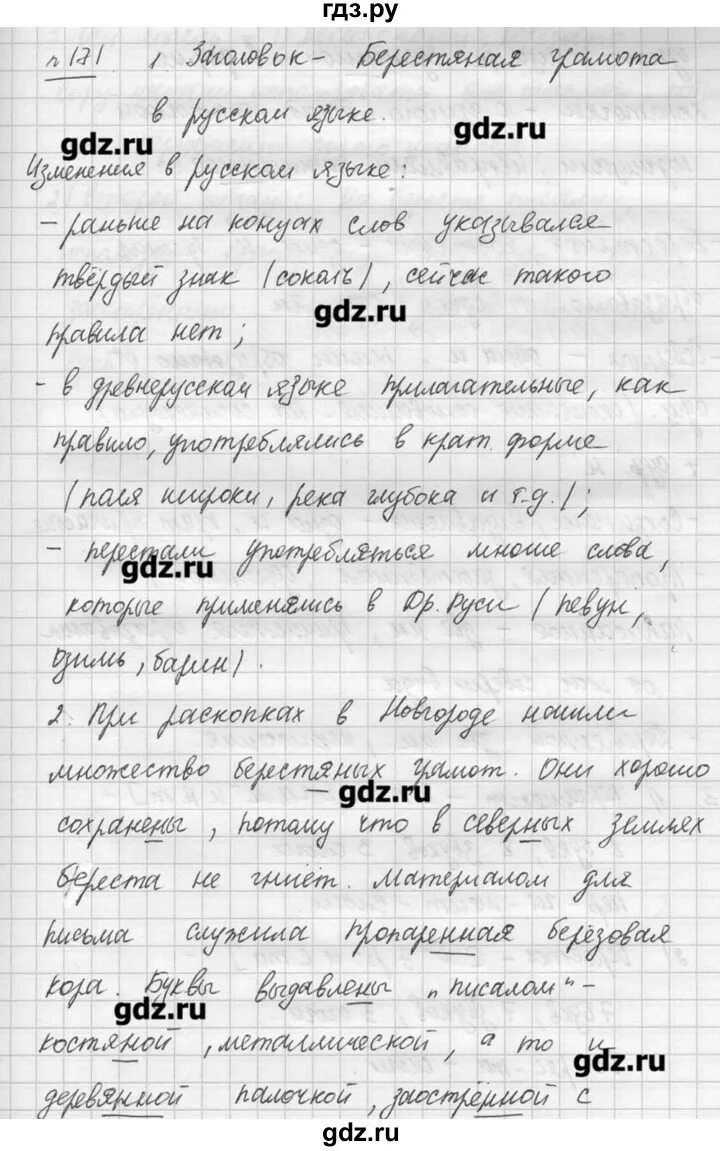 гдз.ру
п 171 1. Заголовок - Берестяная грамота
в русском языке.
gdz.ru
gdz.ru
Изменения в русском языке:
- раньше на концах слов указывался
твёрдый знак (сокалъ), сейчас такого
gdz.ru
правила нет;
- в древнерусском языке прилагательные, как
правило, употреблялись в крат. форме
(поля широки, река глубока и т.д.);
- перестали употребляться многие слова,
gdz.ru
которые применялись в Др. Руси (певун,
озимь, барин).
2. При раскопках в Новгороде нашли
множество берестяных грамот. Они хорошо
gdz.ru
сохранены, потому что в северных землях
береста не гниёт. Материалом для
письма служила пропаренная берёзовая
кора. Буквы выдавлены "писалом" -
gdz.ru
костяной, металлической, а то и
gdz.ru
деревянной палочкой, заострённой с
gdz.ru